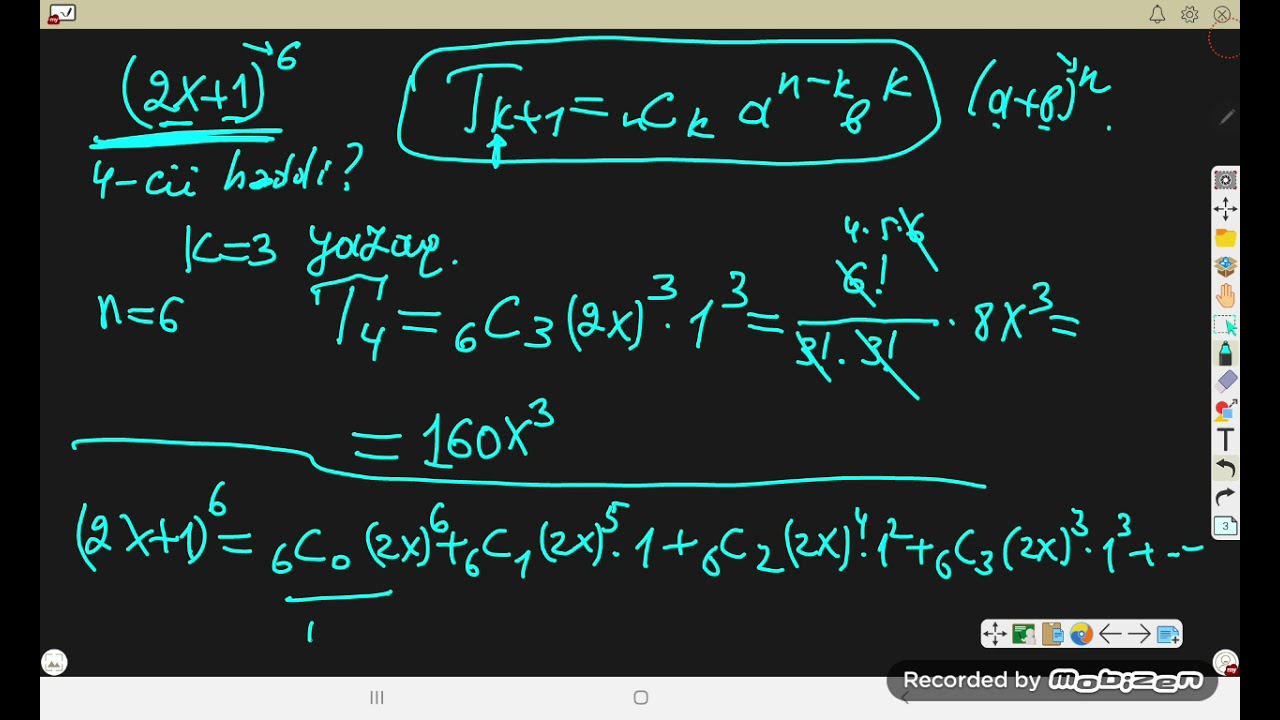 (2x+1)⁶ T_{k+1} = ₙC_k a^{n-k} b^k (a+b)ⁿ.
4-cü həddi?
k=3 yazaq.
n=6 T₄ = ₆C₃ (2x)³ · 1³ = \frac{6!}{3! · 3!} · 8x³ =
4 · 5 · 6
= 160x³
(2x+1)⁶ = ₆C₀ (2x)⁶ + ₆C₁ (2x)⁵ · 1 + ₆C₂ (2x)⁴ · 1² + ₆C₃ (2x)³ · 1³ + --
T
3
Recorded by mobizen